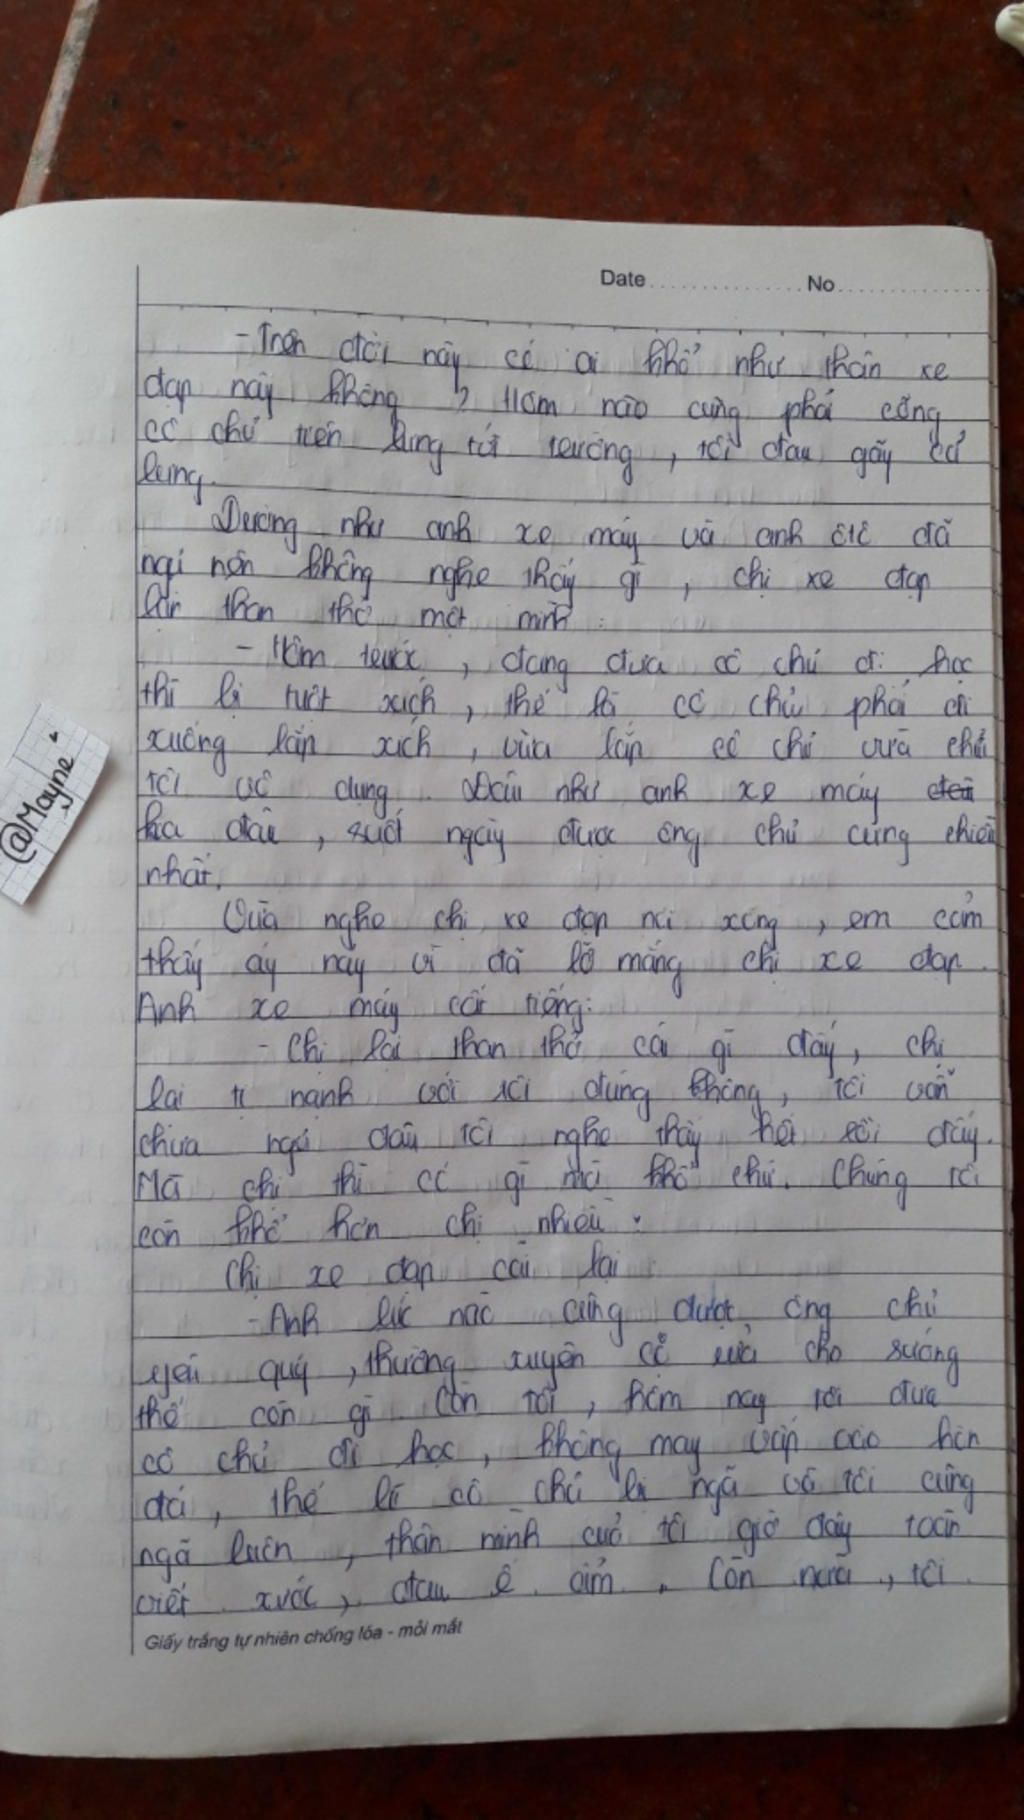 Date .................. No ..................
- Trên đời này có ai khổ như thân xe
đạp này không ? Hôm nào cũng phải cõng
cô chủ trên lưng tới trường, tôi đau gãy cả
lưng.
Dường như anh xe máy và anh ôtô đã
ngủ nên không nghe thấy gì, chị xe đạp
lại than thở một mình :
- Hôm trước, đang đưa cô chủ đi học
thì bị tuột xích, thế là cô chủ phải đi
xuống lắp xích, vừa lắp cô chủ vừa chửi
tôi vô dụng. Đâu như anh xe máy
kia đâu, suốt ngày được ông chủ cưng chiều
nhất.
Vừa nghe chị xe đạp nói xong, em cảm
thấy áy náy vì đã lỡ mắng chị xe đạp.
Anh xe máy cất tiếng:
- Chị lại than thở cái gì đấy, chị
lại tị nạnh với tôi đúng không, tôi vẫn
chưa ngủ đâu tôi nghe thấy hết rồi đấy.
Mà chị thì có gì mà khổ chứ. Chúng tôi
còn khổ hơn chị nhiều.
Chị xe đạp cãi lại
- Anh lúc nào cũng được ông chủ
yêu quý, thường xuyên cọ rửa cho sướng
thế còn gì. Còn tôi, hôm nay tôi đưa
cô chủ đi học, không may vấp vào hòn
đá, thế là cô chủ bị ngã và tôi cũng
ngã luôn, thân mình của tôi giờ đây toàn
viết xước, đau ê ẩm. Còn nữa, tôi
Giấy trắng tự nhiên chống lóa - mỏi mắt
@Mayne